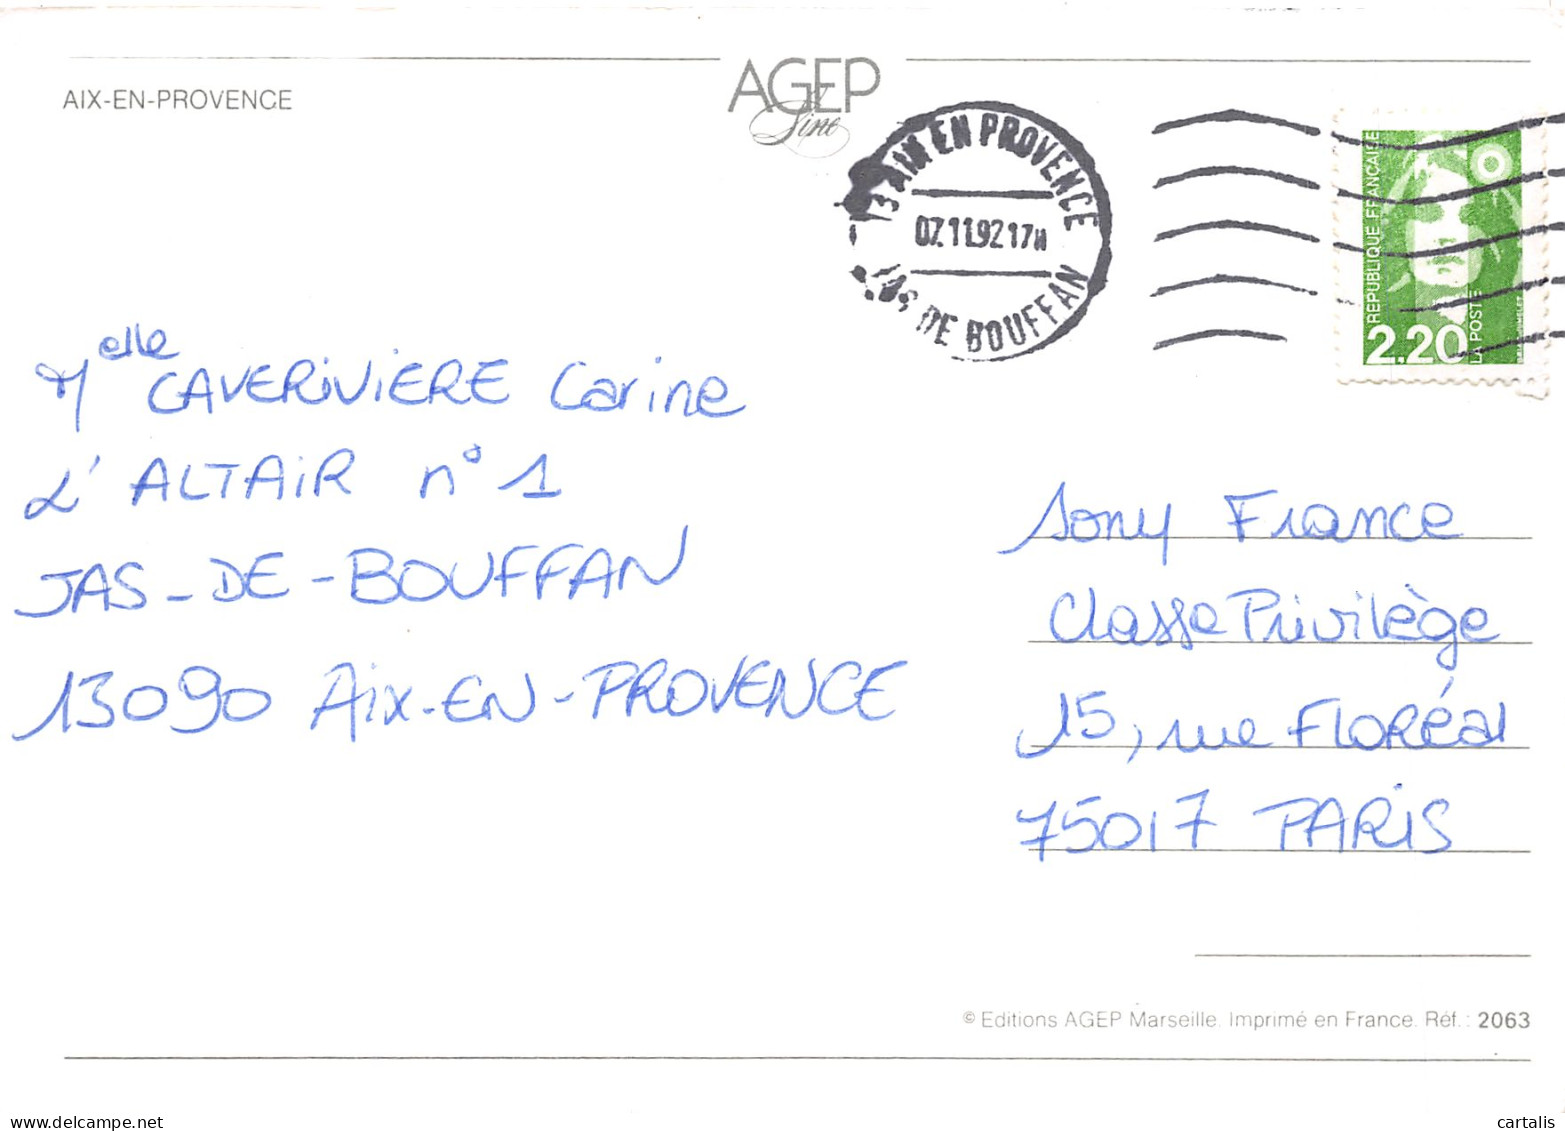 AIX-EN-PROVENCE
AGEP
Line
13 AIX EN PROVENCE
07.11.92 17H
JAS DE BOUFFAN
REPUBLIQUE FRANCAISE
2.20
LA POSTE
Melle CAVERIVIERE Carine
L'ALTAIR n° 1
JAS-DE-BOUFFAN
13090 AIX-EN-PROVENCE
Sony France
Classe Privilège
15, rue FLORéal
75017 PARIS
© Editions AGEP Marseille. Imprimé en France. Réf.: 2063
cartalis
delcampe.net